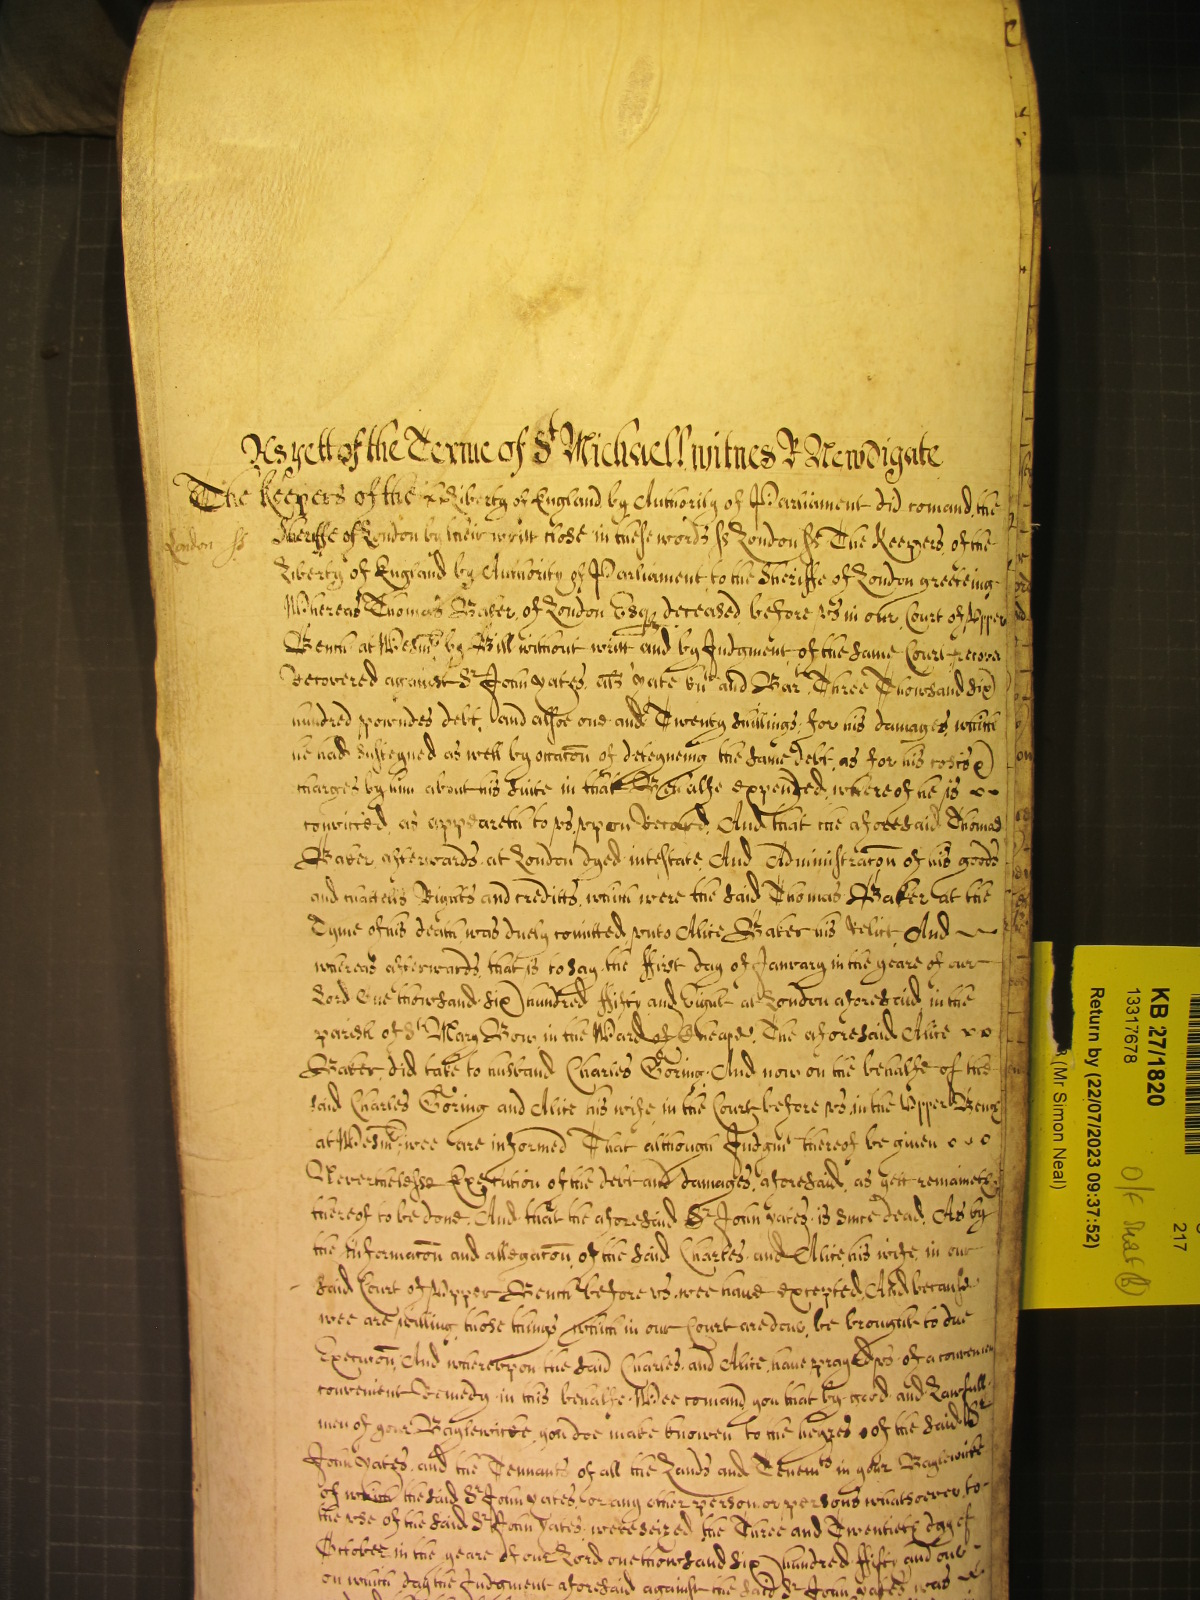 As yett of the Terme of St Michaell witnes R Newdigate
The Keepers of the Liberty of England by Authority of Parliament did comand the
London ss
Sheriffe of London by their writt close in these words ss London ss The Keepers of the
Liberty of England by Authority of Parliament to the Sheriffe of London greeteing
Whereas Thomas Baker of London Esqr deceased before us in our Court of Upper
Bench at Westmr by Bill without writt and by Judgment of the same Court recove
Recovered against Sr John Yates als Yate knt and Bart Three Thowsand Six
hundred powndes debt, and alsoe one and Twenty shillings for his damages which
he had susteyned as well by occacon of deteyneing the same debt as for his costs &
charges by him about his suite in that Behalfe expended, whereof he is
convicted, as appeareth to us upon Record, And that the aforesaid Thomas
Baker afterwards at London dyed intestate And Administracon of his goods
and chattells Rights and creditts, which were the said Thomas Baker at the
Tyme of his death was duely comitted unto Alice Baker his Relict And
whereas afterwards that is to say the first day of January in the yeare of our
Lord One thowsand six hundred ffifty and Eight at London aforesaid in the
parish of St Mary Bow in the Ward of Cheape, The aforesaid Alice
Baker did take to husband Charles Goring And now on the behalfe of the
said Charles Goring and Alice his wife in the Court before us in the Upper Bench
at Westmr wee are informed That although Judgmt thereof be given
Neverthelesse Execution of the debt and damages aforesaid, as yett remaineth
thereof to be done And that the aforesaid Sr John Yates is since dead, As by
the Informacon and allegacon of the said Charles and Alice his wife in our
said Court of Upper Bench before us wee have excepted, And because
wee are willing those things which in our Court are done, be brought to due
Execucon, And whereupon the said Charles and Alice have prayed us of a convenien
convenient Remedy in this behalfe Wee comand you that by good and Lawfull
men of your Baylewicke, you doe make knowen to the heyres of the said Sr
John Yates and the Tennants of all the Lands and Tenemts in your Baylewicke
of which the said Sr John Yates, or any other person or persons whatsoever to
the use of the said Sr John Yates were seized the Three and Twentieth day of
October in the yeare of our Lord one thowsand six hundred ffifty and one
on which day the Judgment aforesaid against the said Sr John Yates was
KB 27/1820
13317678
Return by (22/07/2023 09:37:52)
(Mr Simon Neal)
217